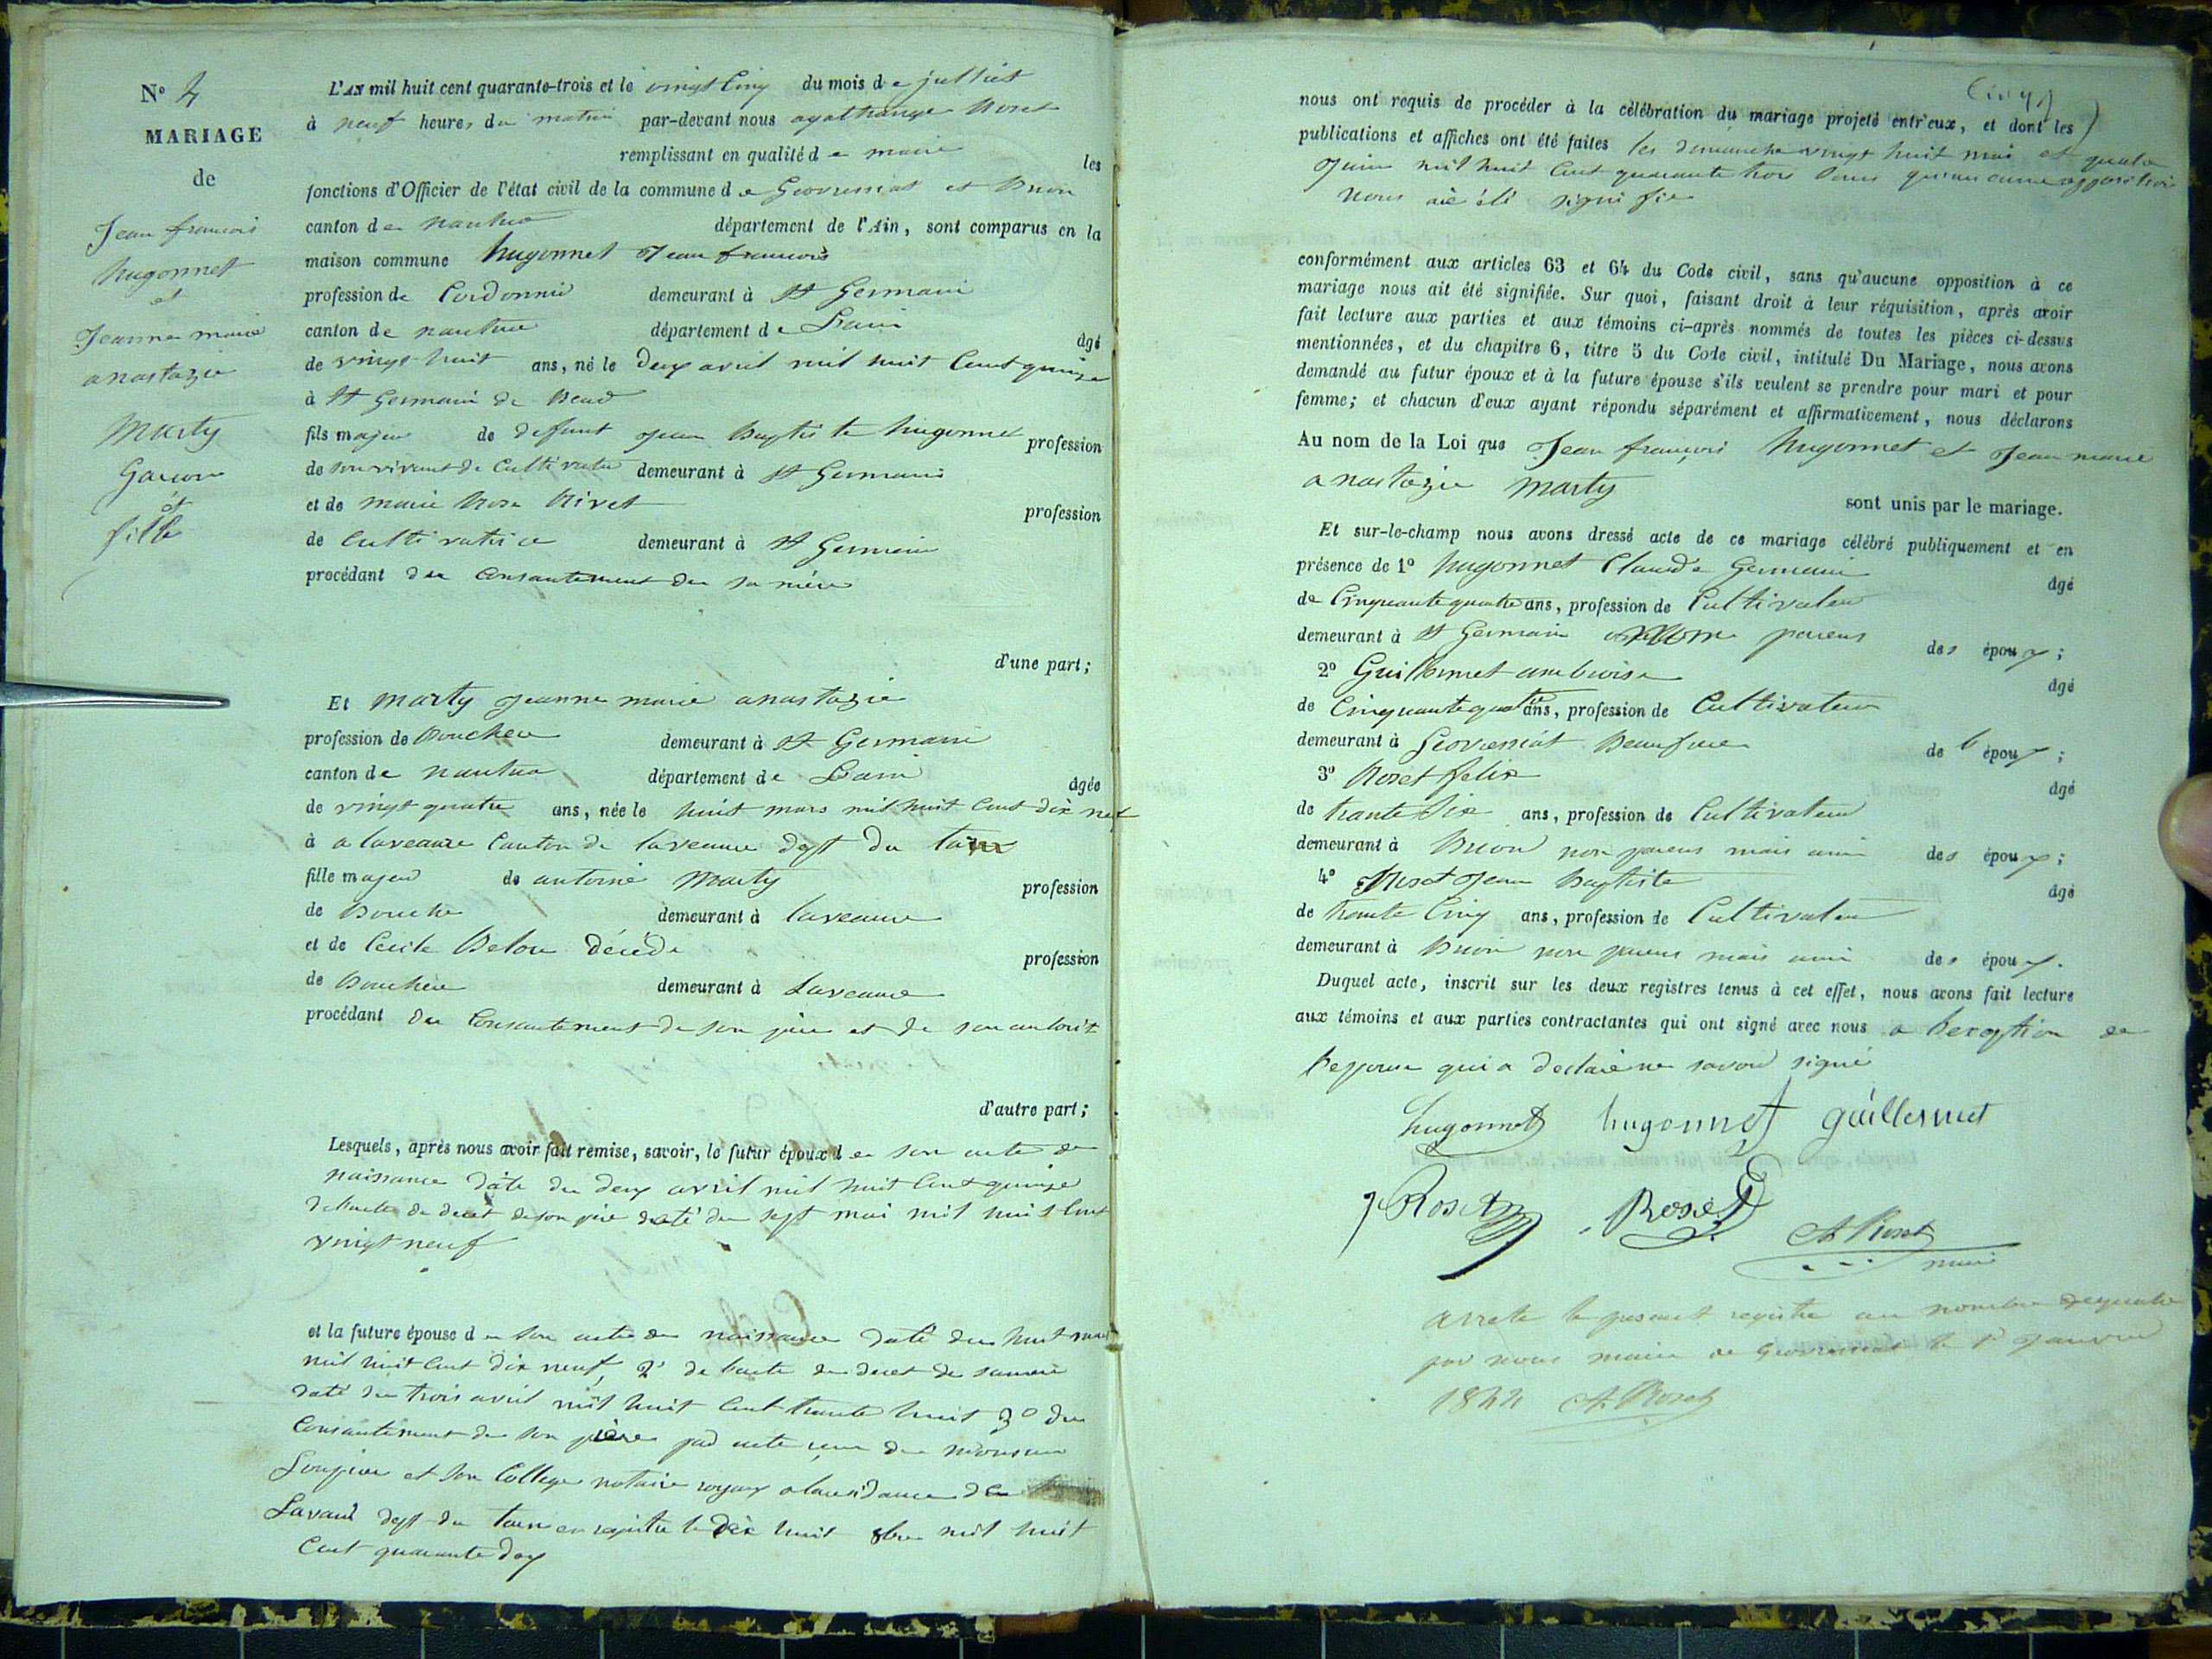 N° 4
MARIAGE
de
Jean francois
hugonnet
et
Jeanne marie
anastazie
Marty
Garcon
et
fille
L'AN mil huit cent quarante-trois et le vingt Cinq du mois de julliet
à neuf heures du matin par-devant nous agathange Roset
remplissant en qualité de maire les
fonctions d'Officier de l'état civil de la commune de Geovressiat et Brion
canton de nantua département de l'Ain, sont comparus en la
maison commune hugonnet Jean francois
profession de Cordonnié demeurant à St Germain
canton de nantua département de Lain âgé
de vingt huit ans, né le deux avril mil huit Cent quinze
à St Germain de Beard
fils majeur de defunt Jean Baptiste hugonnet profession
de son vivant de Cultivateur demeurant à St Germain
et de marie Rose Nivet profession
de Cultivatrice demeurant à St Germain
procédant du Consantement de sa mère
d'une part;
Et Marty Jeanne marie anastazie
profession de Boucher demeurant à St Germain
canton de nantua département de Lain âgée
de vingt quatre ans, née le huit mars mil huit Cent dix neuf
à a laveaure Canton de laveaure dept du tarn
fille majeur de antoine Marty profession
de Bouche demeurant à laveaure
et de Cecile Belou décédé profession
de Bouchère demeurant à Laveaure
procédant du Consantement de son père et de son autorité
d'autre part;
Lesquels, après nous avoir fait remise, savoir, le futur époux de son acte de
naissance daté du deux avril mil huit Cent quinze
de lacte de decet de son père daté du sept mai mil huit Cent
vingt neuf
et la future épouse de son acte de naissance daté du huit mars
mil huit Cent dix neuf, 2° de lacte de decet de sa mère
daté du trois avril mil huit Cent trante huit 3° du
Consantement de son père par acte reçu de monsieur
et son College notaire royaux a la residance de
Lavaur dept du tarn enregistre le dix huit 8bre mil huit
Cent quarante deux
Cinq
nous ont requis de procéder à la célébration du mariage projeté entr'eux, et dont les
publications et affiches ont été faites les dimanche vingt huit mai et quatre
Juin mil huit Cent quarante trois sans qu'aucune opposition
nous aie été signifie
conformément aux articles 63 et 64 du Code civil, sans qu'aucune opposition à ce
mariage nous ait été signifiée. Sur quoi, faisant droit à leur réquisition, après avoir
fait lecture aux parties et aux témoins ci-après nommés de toutes les pièces ci-dessus
mentionnées, et du chapitre 6, titre 5 du Code civil, intitulé Du Mariage, nous avons
demandé au futur époux et à la future épouse s'ils veulent se prendre pour mari et pour
femme; et chacun d'eux ayant répondu séparément et affirmativement, nous déclarons
Au nom de la Loi que Jean françois hugonnet et Jean marie
anastazie Marty sont unis par le mariage.
Et sur-le-champ nous avons dressé acte de ce mariage célébré publiquement et en
présence de 1° hugonnet Claude Germain âgé
de Cinquante quatre ans, profession de Cultivateur
demeurant à St Germain parens des époux;
2° Guillermet ambroise âgé
de Cinquante quatre ans, profession de Cultivateur
demeurant à Geovressiat Beaufrere de l'époux;
3° Roset felix âgé
de trante six ans, profession de Cultivateur
demeurant à Brion non parens mais ami des époux;
4° Roset Jean Baptiste âgé
de trante Cinq ans, profession de Cultivateur
demeurant à Brion non parens mais ami des époux.
Duquel acte, inscrit sur les deux registres tenus à cet effet, nous avons fait lecture
aux témoins et aux parties contractantes qui ont signé avec nous a lexeption de
lepouse qui a declaré ne savoir signé
hugonnet hugonnet guillermet
J Roset Roset
A Roset
maire
arrete le present registre au nombre de quatre
par nous maire de Geovressiat le 1er Janvier
1844 A. Roset